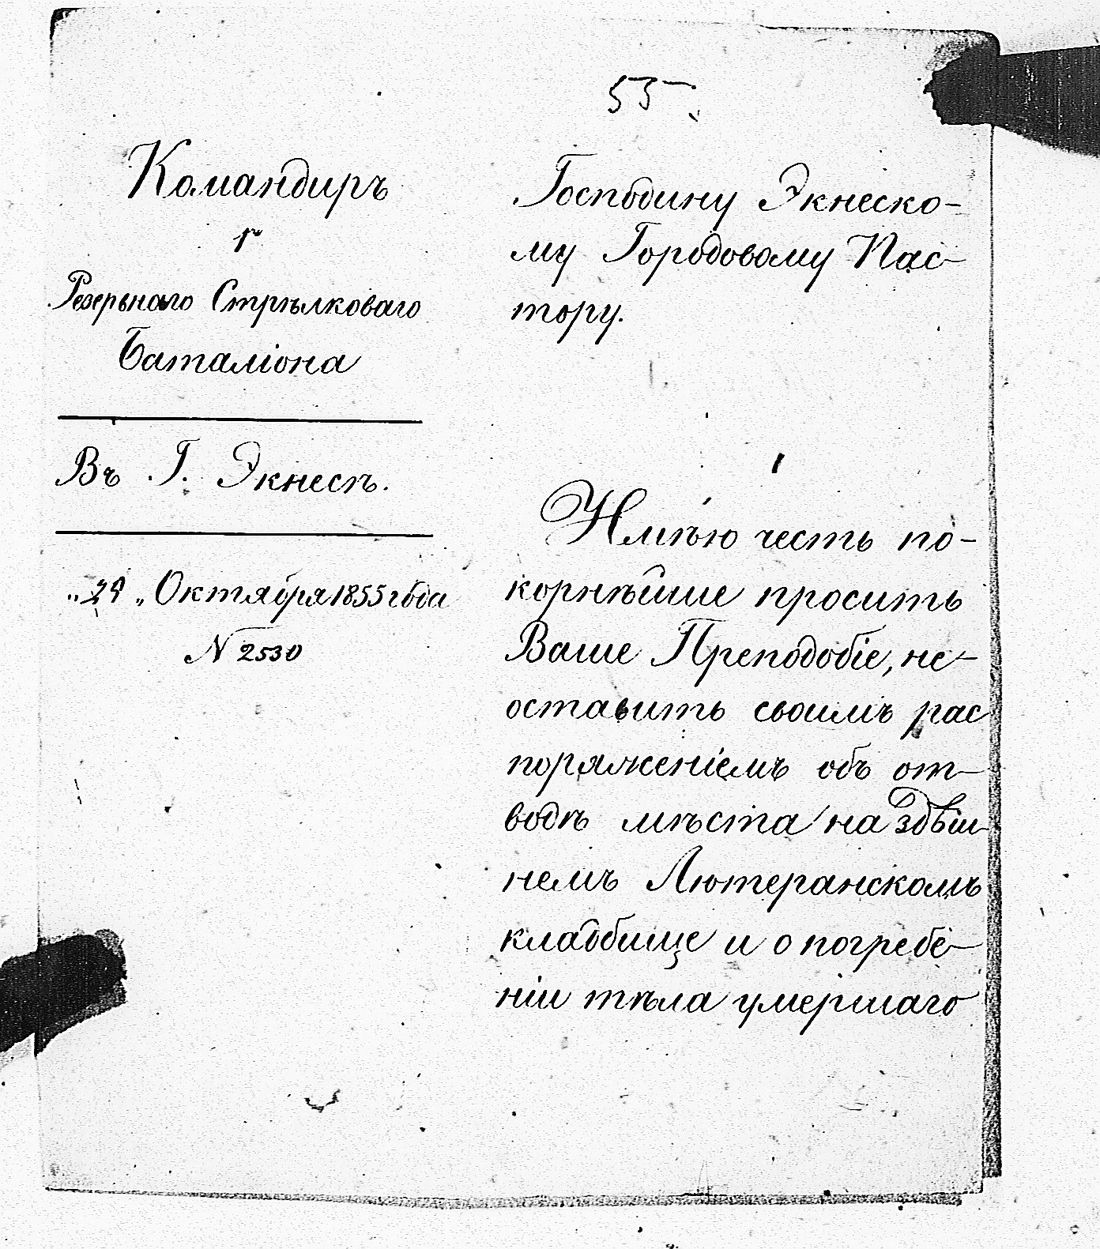 55.
Командиръ
1го
Резервнаго Стрѣлковаго
Баталіона
Въ Г. Экнесѣ.
„24„ Октября 1855 года
N 2530
Господину Экнеско-
му Городовому Пас-
тору.
Имѣю честь по-
корнѣйше просить
Ваше Преподобіе, не-
оставить своимъ рас
поряженіемъ объ от-
водѣ мѣста на здѣш-
немъ Лютеранскомъ
кладбище и о погребе-
ніи тѣла умершаго